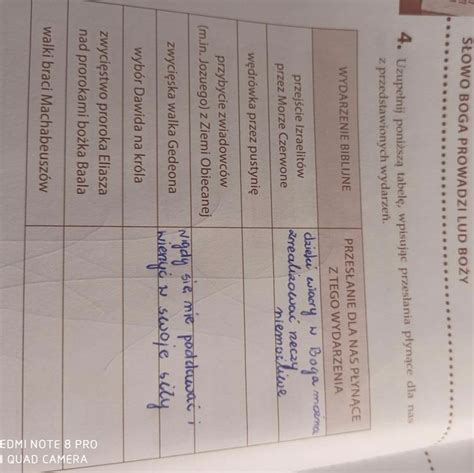 SŁOWO BOGA PROWADZI LUD BOŻY
4. Uzupełnij poniższą tabelę, wpisując przesłania płynące dla nas
z przedstawionych wydarzeń.
WYDARZENIE BIBLIJNE
PRZESŁANIE DLA NAS PŁYNĄCE
Z TEGO WYDARZENIA
przejście Izraelitów
przez Morze Czerwone
dzięki wiary w Boga można
zrealizować rzeczy
niemożliwe
wędrówka przez pustynię
przybycie zwiadowców
(m.in. Jozuego) z Ziemi Obiecanej
zwycięska walka Gedeona
nigdy się nie poddawać i
wierzyć w swoje siły
wybór Dawida na króla
zwycięstwo proroka Eliasza
nad prorokami bożka Baala
walki braci Machabeuszów
EDMI NOTE 8 PRO
QUAD CAMERA